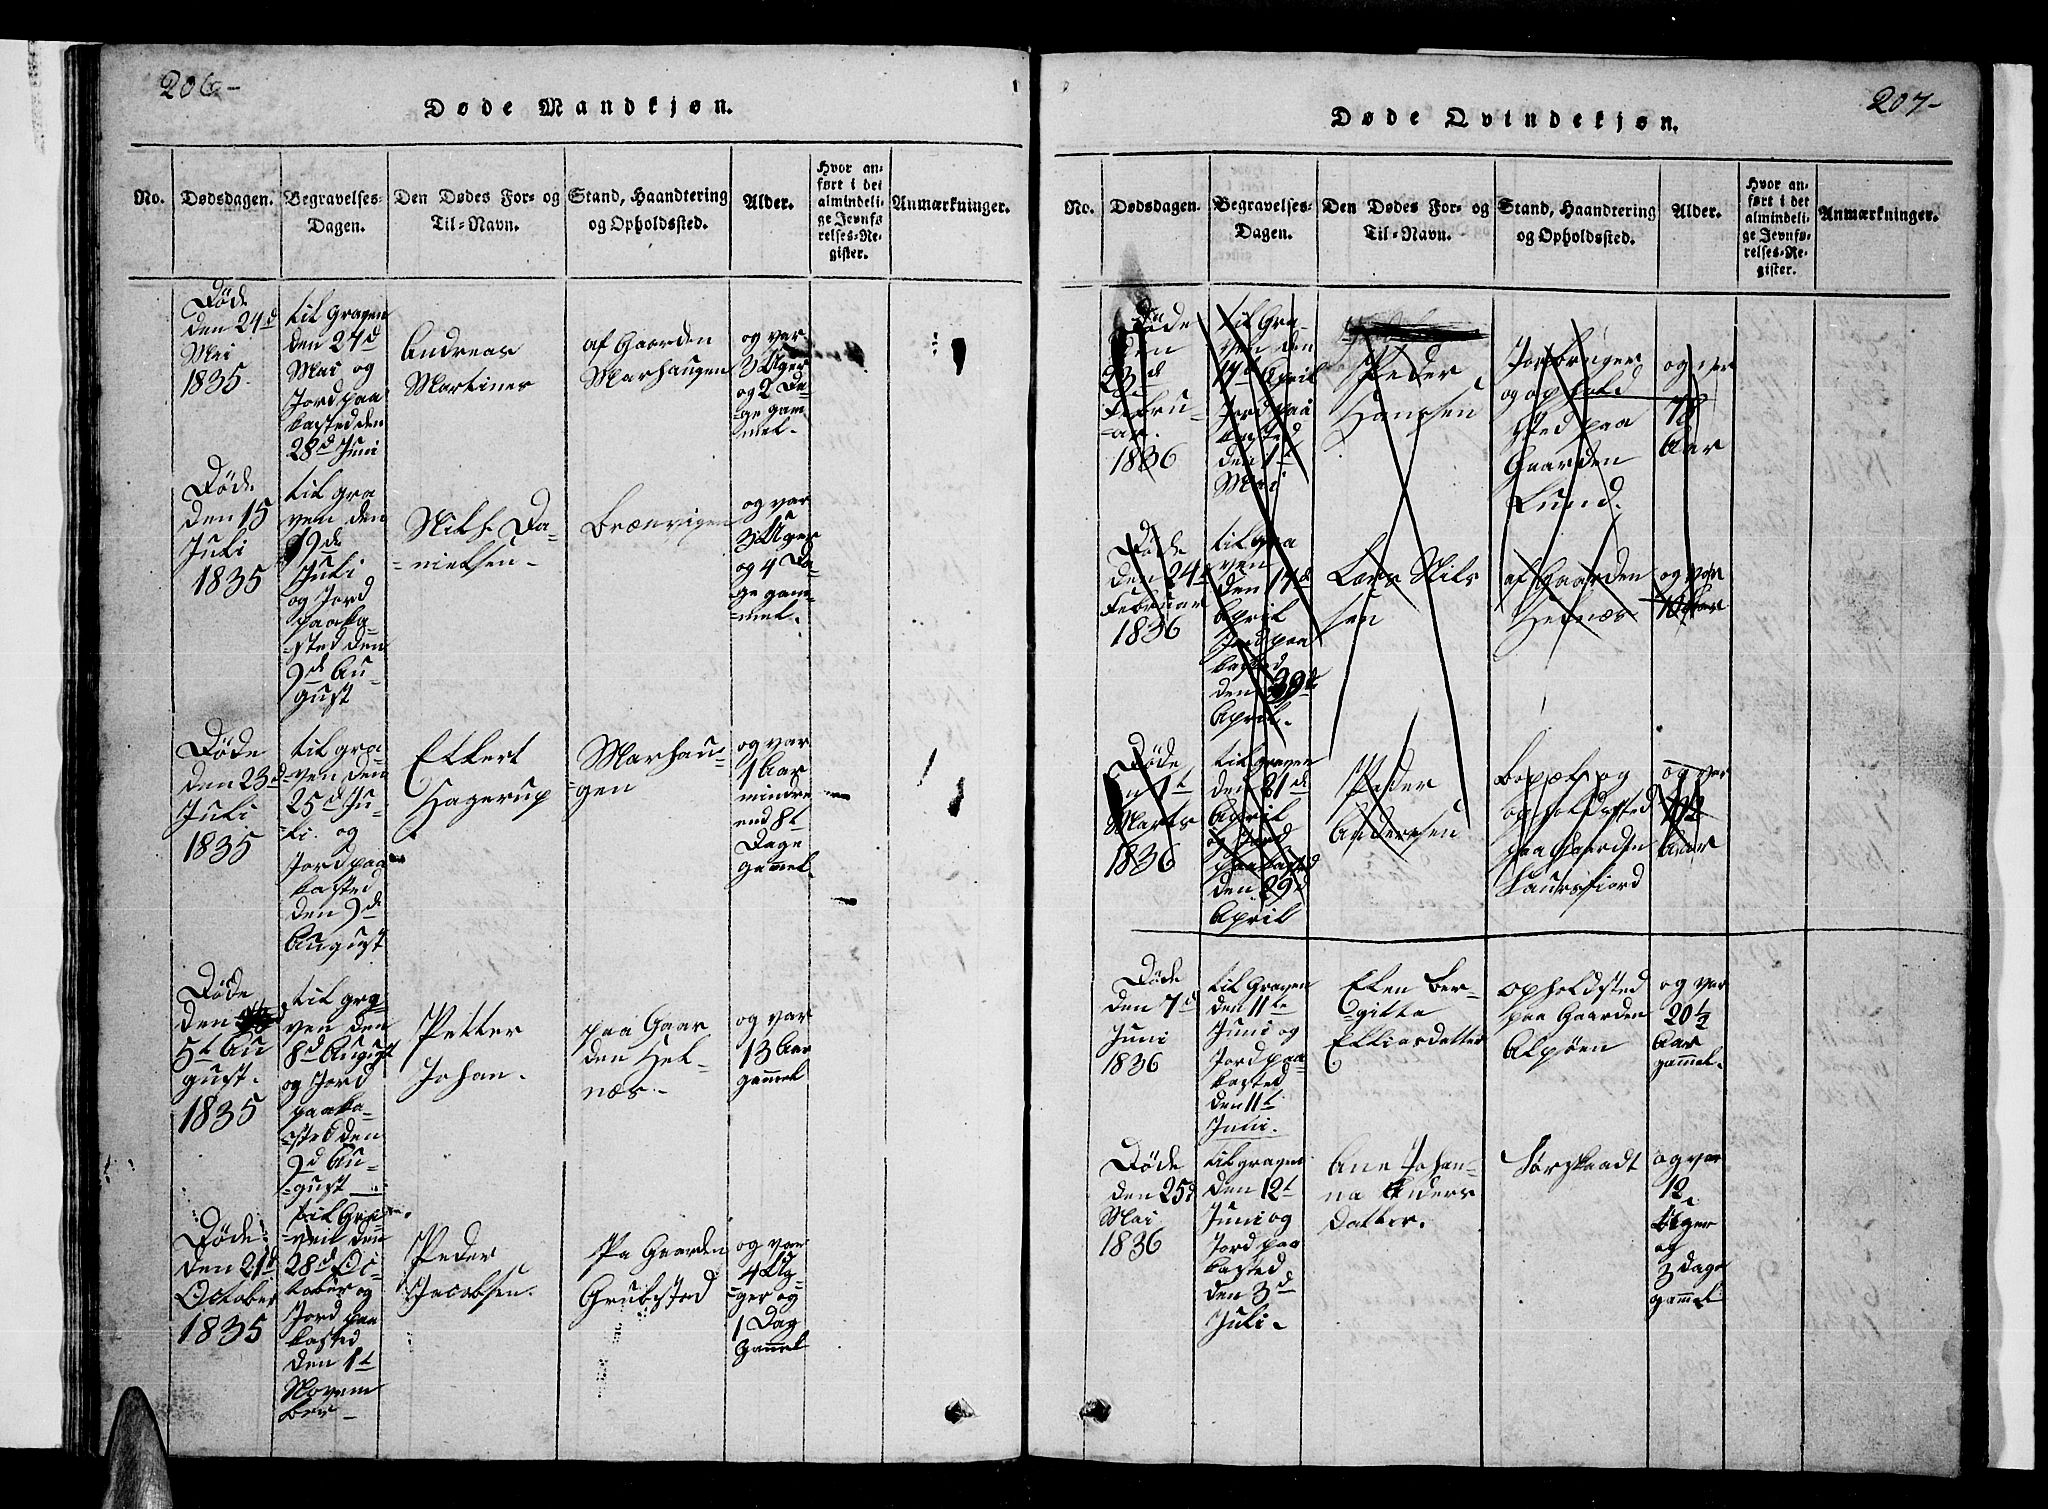 206-
Døde Mandkjøn.
No.
Dødsdagen.
Begravelses-
Dagen.
Den Dødes For- og
Til-Navn.
Stand, Haandtering
og Opholdssted.
Alder.
Hvor an-
ført i det
almindeli-
ge Jevnfø-
relses-Re-
gister.
Anmærkninger.
Døde
den 24d
Mai
1835.
til Graven
den 24d
Mai og
Jord paa
kasted den
28d Juni
Andreas
Martines
af Gaarden
Marhaugen
og var
3 Uger
og 2 Da-
-ge gam-
-mel.
Døde
den 15
Juli
1835
til Gra
ven den
19de
Juli
og Jord
paaka-
-sted den
9d Au-
gust
Nils Da-
-nielsen.
Brænvigen
og var
3 Uger
og 4 Da-
-ge gam-
-mel.
Døde
den 23d
Juli
1835
til gra-
-ven den
25d Ju-
-li. og
Jord paa
kasted
den 9de
August
Ellert
Hagerup
Marhau-
-gen
og var
1 Aar
mindre
end 8t
Dage
gamel.
Døde
den
5t Au
gust.
1835
til gra-
ven den
8d August
og Jord
paaka-
-sted den
9d Au-
-gust
Petter
Johan.
paa Gaar
den Hel-
næs.
og var
13 Aar
gammel
Døde
den 21d
October
1835
til Gra-
-ven den
28d Oc-
tober og
Jord paa
kasted
den 1t
Novem
ber
Peder
Jacobsen.
Pa Gaarden
Grubstad
og var
4 Uger
-ger og
1 Dag
gammel
207-
Døde Qvindekjøn.
No.
Dødsdagen.
Begravelses-
Dagen.
Den Dødes For- og
Til-Navn.
Stand, Haandtering
og Opholdssted.
Alder.
Hvor an-
ført i det
almindeli-
ge Jevnfø-
relses-Re-
gister.
Anmærkninger.
Døde
den
23d
Febru-
-ar.
1836
til Gra-
ven den
April
Jord paa
kasted
den 1t
Mai
Peder
Hansen
Jordbruger
og ophold
sted paa
Gaarden
Lund.
og var
78
Aar
Døde
den 24d
Februar
1836
til gra
ven
den 14d
April
Jord paa
kasted
den
April.
Lars Nils
sen
af Gaarden
Helnæs
og var
Døde
1t
Marts
1836
til Graven
den 21d
April
og Jord
paa kasted
den 29d
April
Peder
Andersen
bopæl og
opholdssted
paa Gaarden
og var
Aar
Døde
den 7d
Juni
1836
til Graven
den 11te
Juni og
Jord paa
kasted
den 11t
Julii.
Elen Ber-
-gitta
Elliasdatter
opholdsted
paa Gaarden
Alpøen
og var
20 1/2
Aar
gammel.
Døde
den 25d
Mai
1836
til Graven
den 12t
Juni og
Jord paa
kasted
den 3d
Juli.
Ane Johan-
na Anders
datter.
Sørskaadt
og var
12
Uger
og
3 dage
gammel